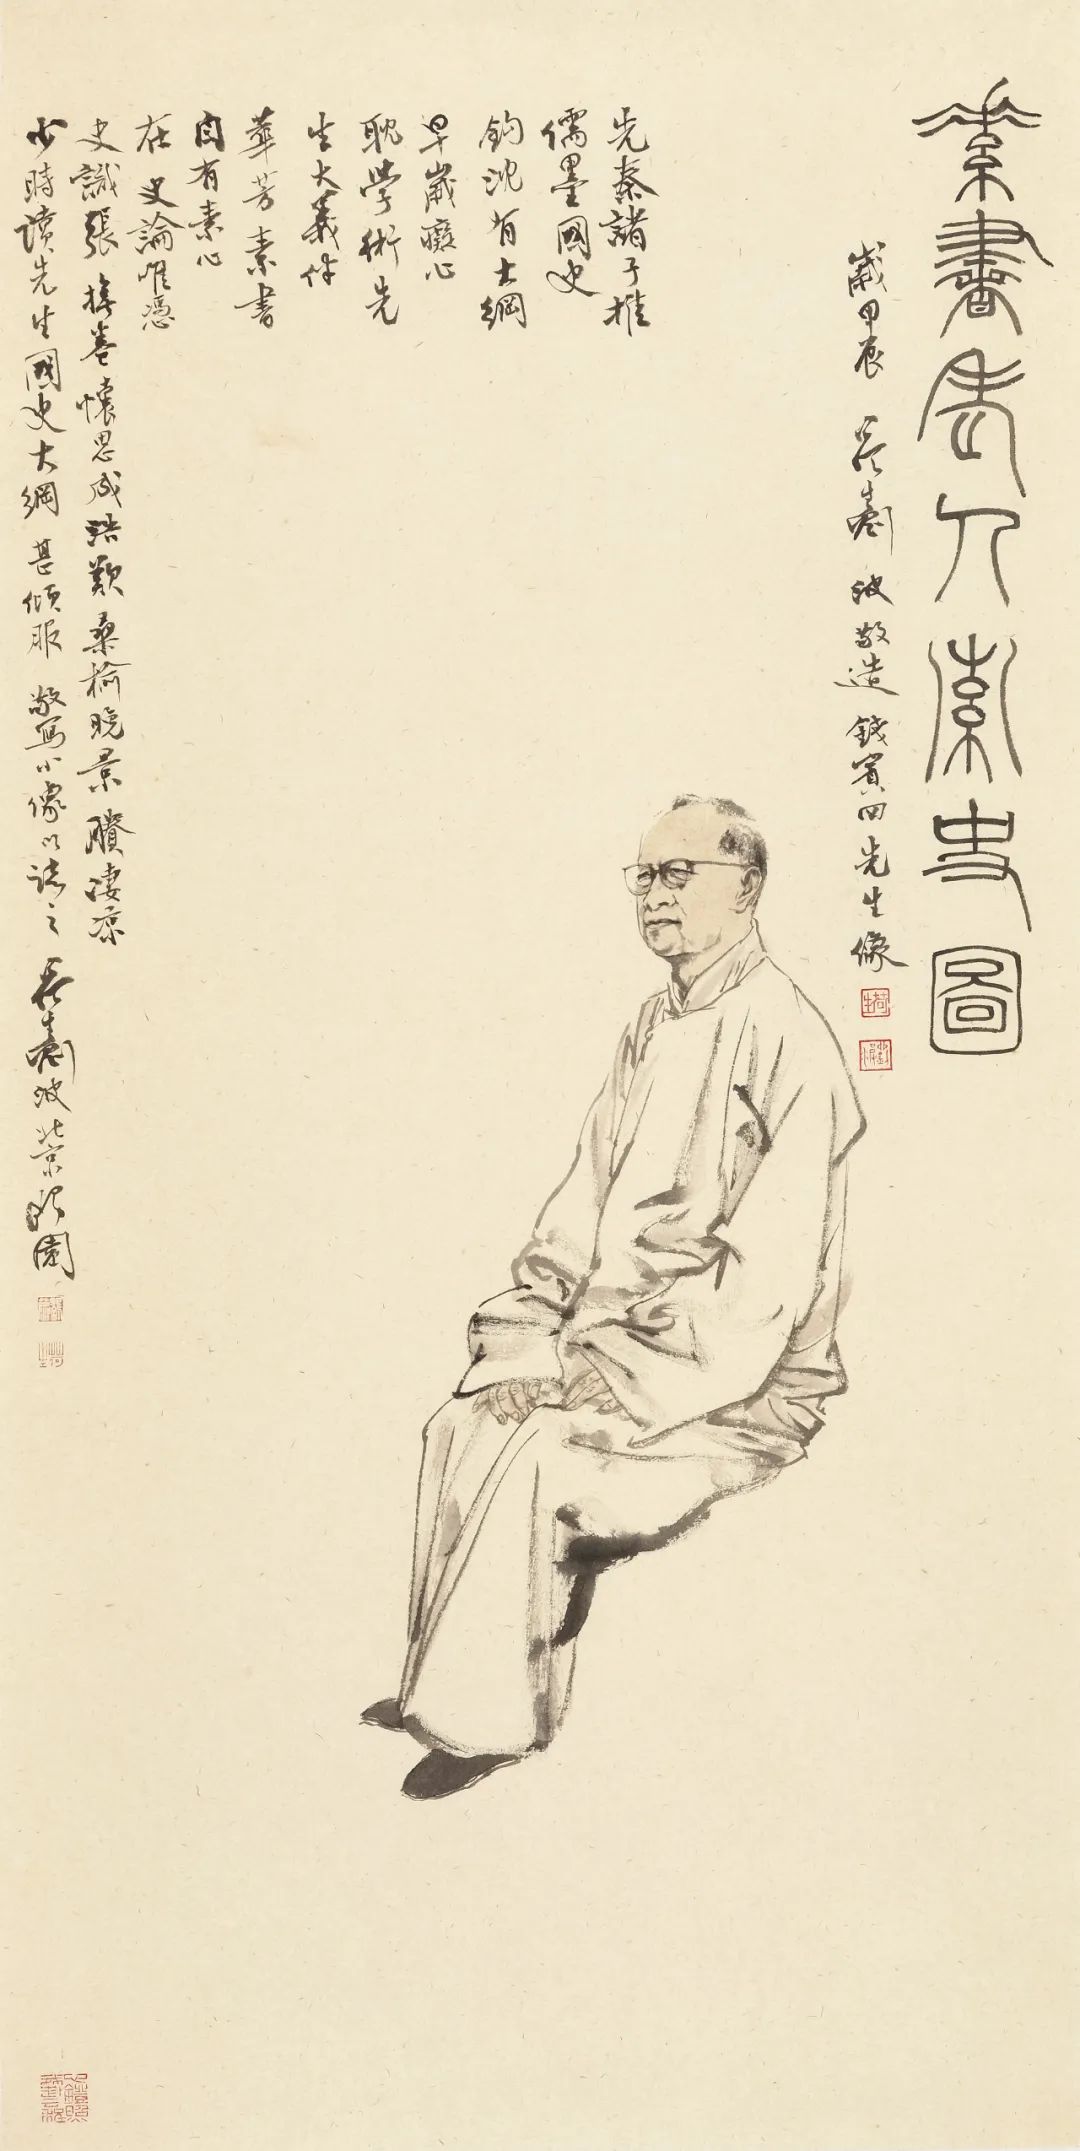 素書老人索史圖
歲甲辰 波敬造 錢賓四先生像
先秦諸子推
儒墨國史
鈎沈有大綱
早歲癡心
耽學術先
生大義伴
華芳素書
自有素心
在史論唯憑
史識張 掩卷懷思成浩歎 桑榆晚景賸淒涼
少時讀先生國史大綱 甚傾服 敬寫小像以誌之 波北京 園